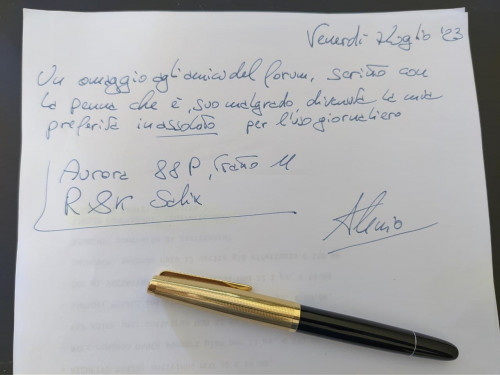 Venerdì 7 Luglio '23
Un omaggio agli amici del forum, scritto con
la penna che è, suo malgrado, diventata la mia
preferita in assoluto per l'uso giornaliero
Aurora 88P, tratto M
R&K Salix
Alessio